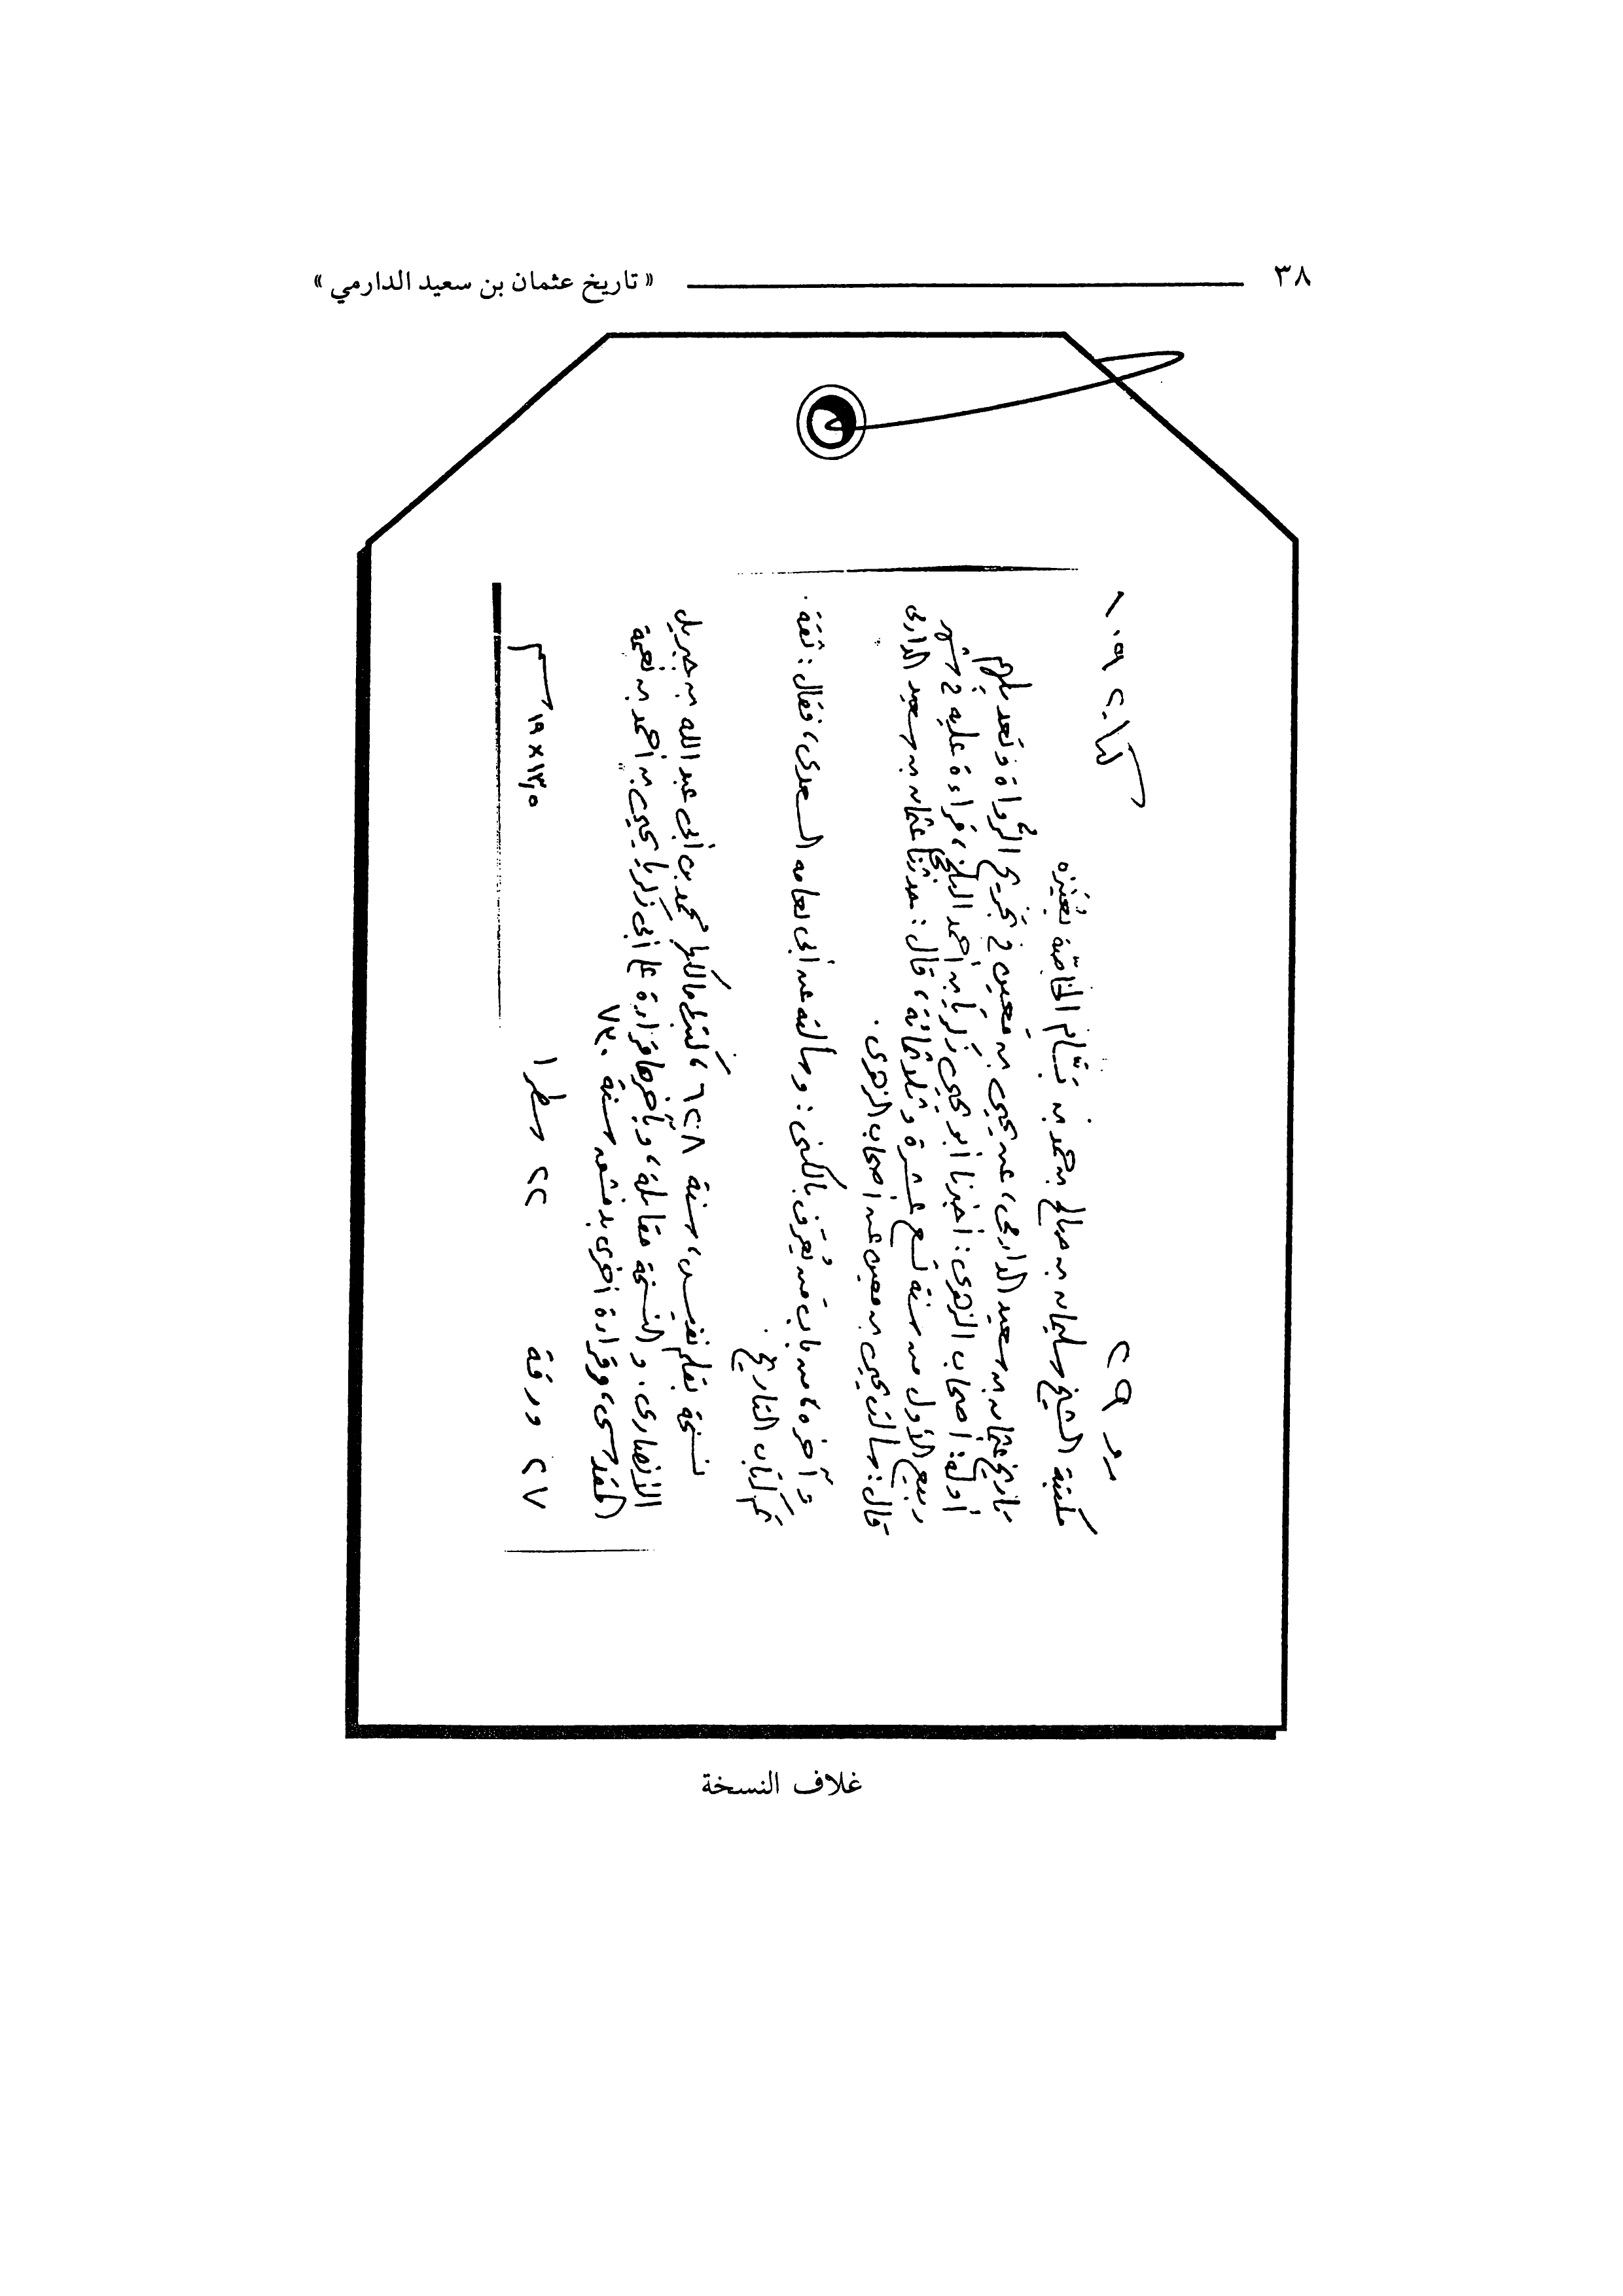 ٣٨ « تاريخ عثمان بن سعيد الدارمي »
كتاب ١٠٩
مكتبة الشيخ سليمان بن صالح بن حمد بن بسّام الخاصّة بعُنَيْزه
تاريخ عثمان بن سعيد الدارمي، عن يحيى بن معين في تجريح الرُّواة وتعديلهم
أوله: أصحاب الزهرى: أخبرنا أبو يحيى زكريا بن أحمد البلخي، قراءة عليه في شهر
ربيع الأول من سنة تسع عشرة وثلاثمائة، قال: حدثنا عثمان بن سعيد الدارمى
قال: سألت يحيى بن معين عن أصحاب الزهرى.
وآخره، من باب من يُعرَف بالكنى: وسألته عن أبى نعامه السعدى، فقال: ثقة.
تم كتاب التاريخ.
نسخة بقلم نفيس، سنة ٦٢٨، كتبها مالكها محمد بن أبى عبد الله بن جبريل
الأنصارى. والنسخة مقابلة، وبآخرها قراءة على أبى زكريا يحيى بن أحمد بن نعمة
المقدسى، وقراءة أخرى بدمشق سنة ٧٢٠
٢٧ ورقة ٢٢ سطرا ١٩×١٣٫٥ سم
غلاف النسخة